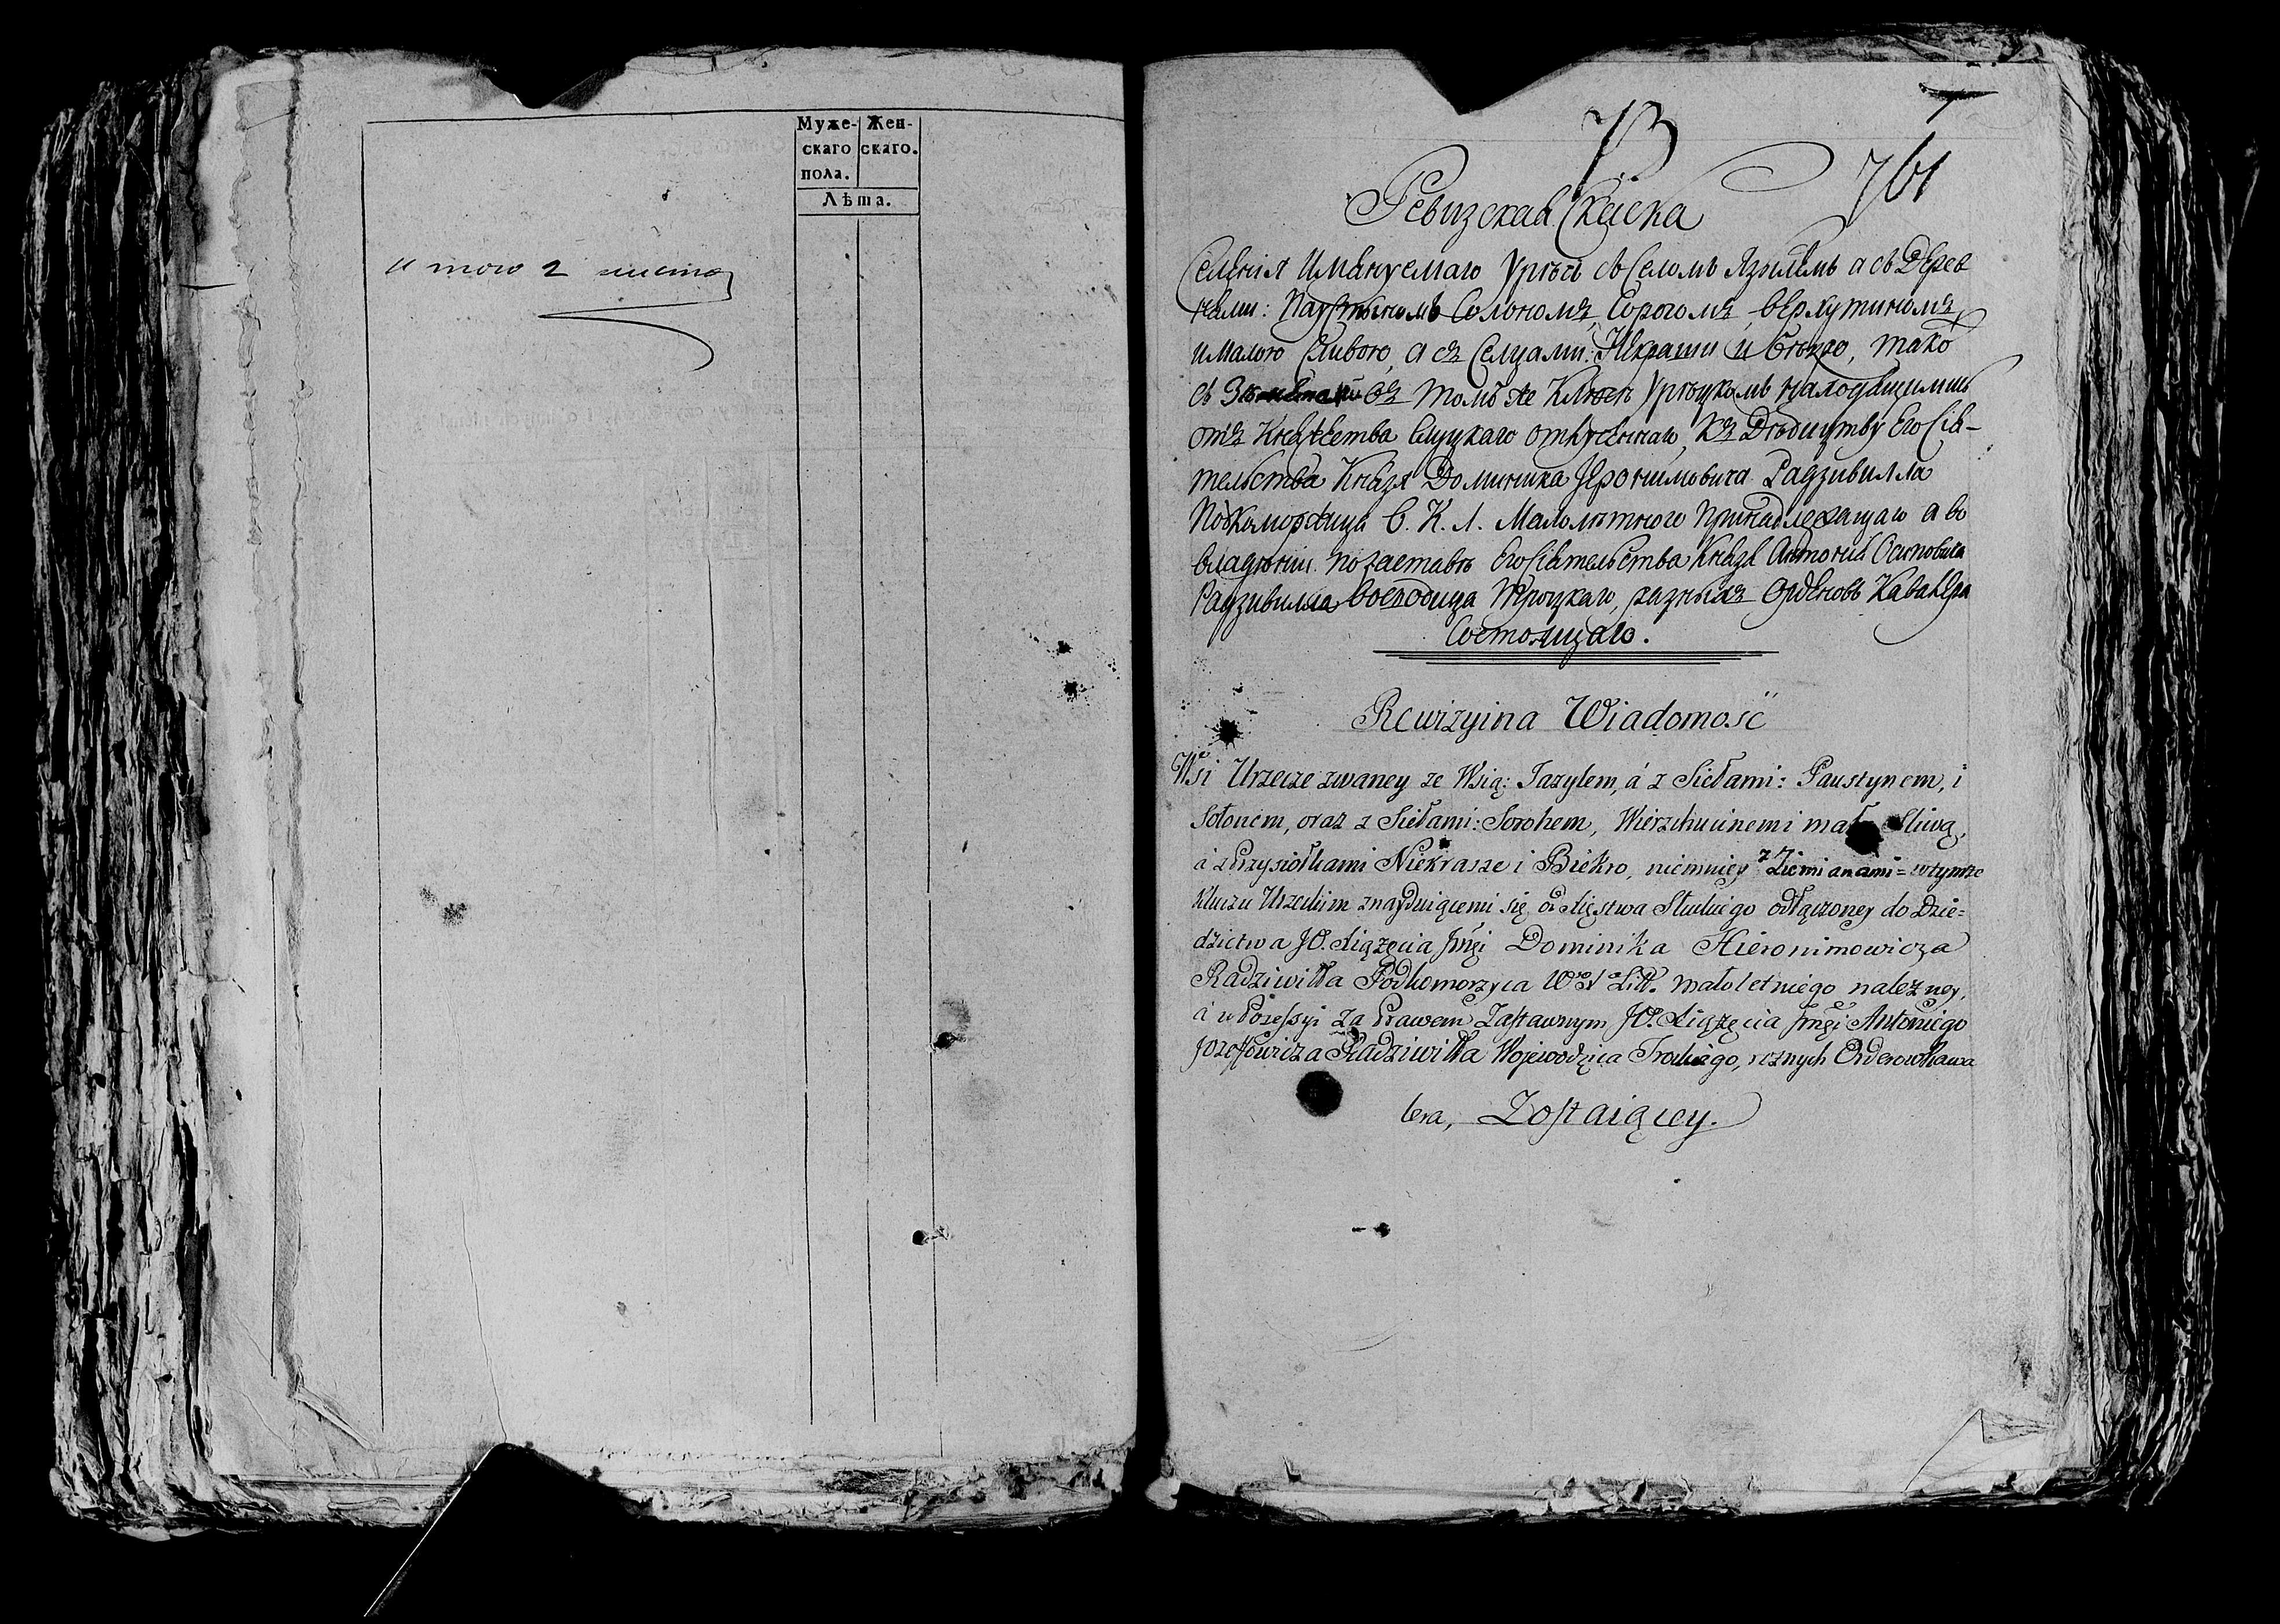 Муже-
скаго
пола.
Жен-
скаго.
Лѣта.
итого 2 листа
73
761
Ревизская Скаска
Селения Имянуемаго Урѣчъ съ Селомъ Язылемъ а съ Дерев
нями: Паустыномъ Солономъ, Сорогомъ, Верхутиномъ,
и Малою Сливою, а съ Селцами: Некраши и Бѣкро, тако
съ въ томъ же Ключѣ Урѣцкомъ находящимися
отъ Княжества Слуцкаго отлученнаго, къ Дѣдицтву Его Сія-
тельства Князя Доминика Иеронимовича Радзивилла
Подкоморжица В. К. Л. Малолѣтного принадлежащаго а во
владѣнии по заставѣ Его Сіятельства Князя Антонія Осиповича
Радзивилла Воеводица Троцкаго, разныхъ Орденовъ Кавалера
Состоящаго.
Rewizyina Wiadomość
Wsi Urzecze zwaney ze Wsią: Jazylem, á z Siełami: Paustynem, i
Sołonem, oraz z Siełami: Sorohem, Wierzchucinem i mał Sliwą,
á z Przysiołkami Niekrasze i Biekro, niemniey z Ziemianami = wtymże
Kluczu Urzeckim znayduiącemi się, od Xięstwa Słuckiego odłączoney do Dzie=
dzictwa JO. Xiążęcia Jmći Dominika Hieronimowicza
Radziwiłła Podkomorzyca W. X. Litt. małoletniego należney,
á w Possessyi za Prawem Zastawnym JO. Xiążęcia Jmći Antoniego
Jozeffowicza Radziwiłła Wojewodzica Trockiego, rożnych Orderow Kawa
lera, Zostaiącey.